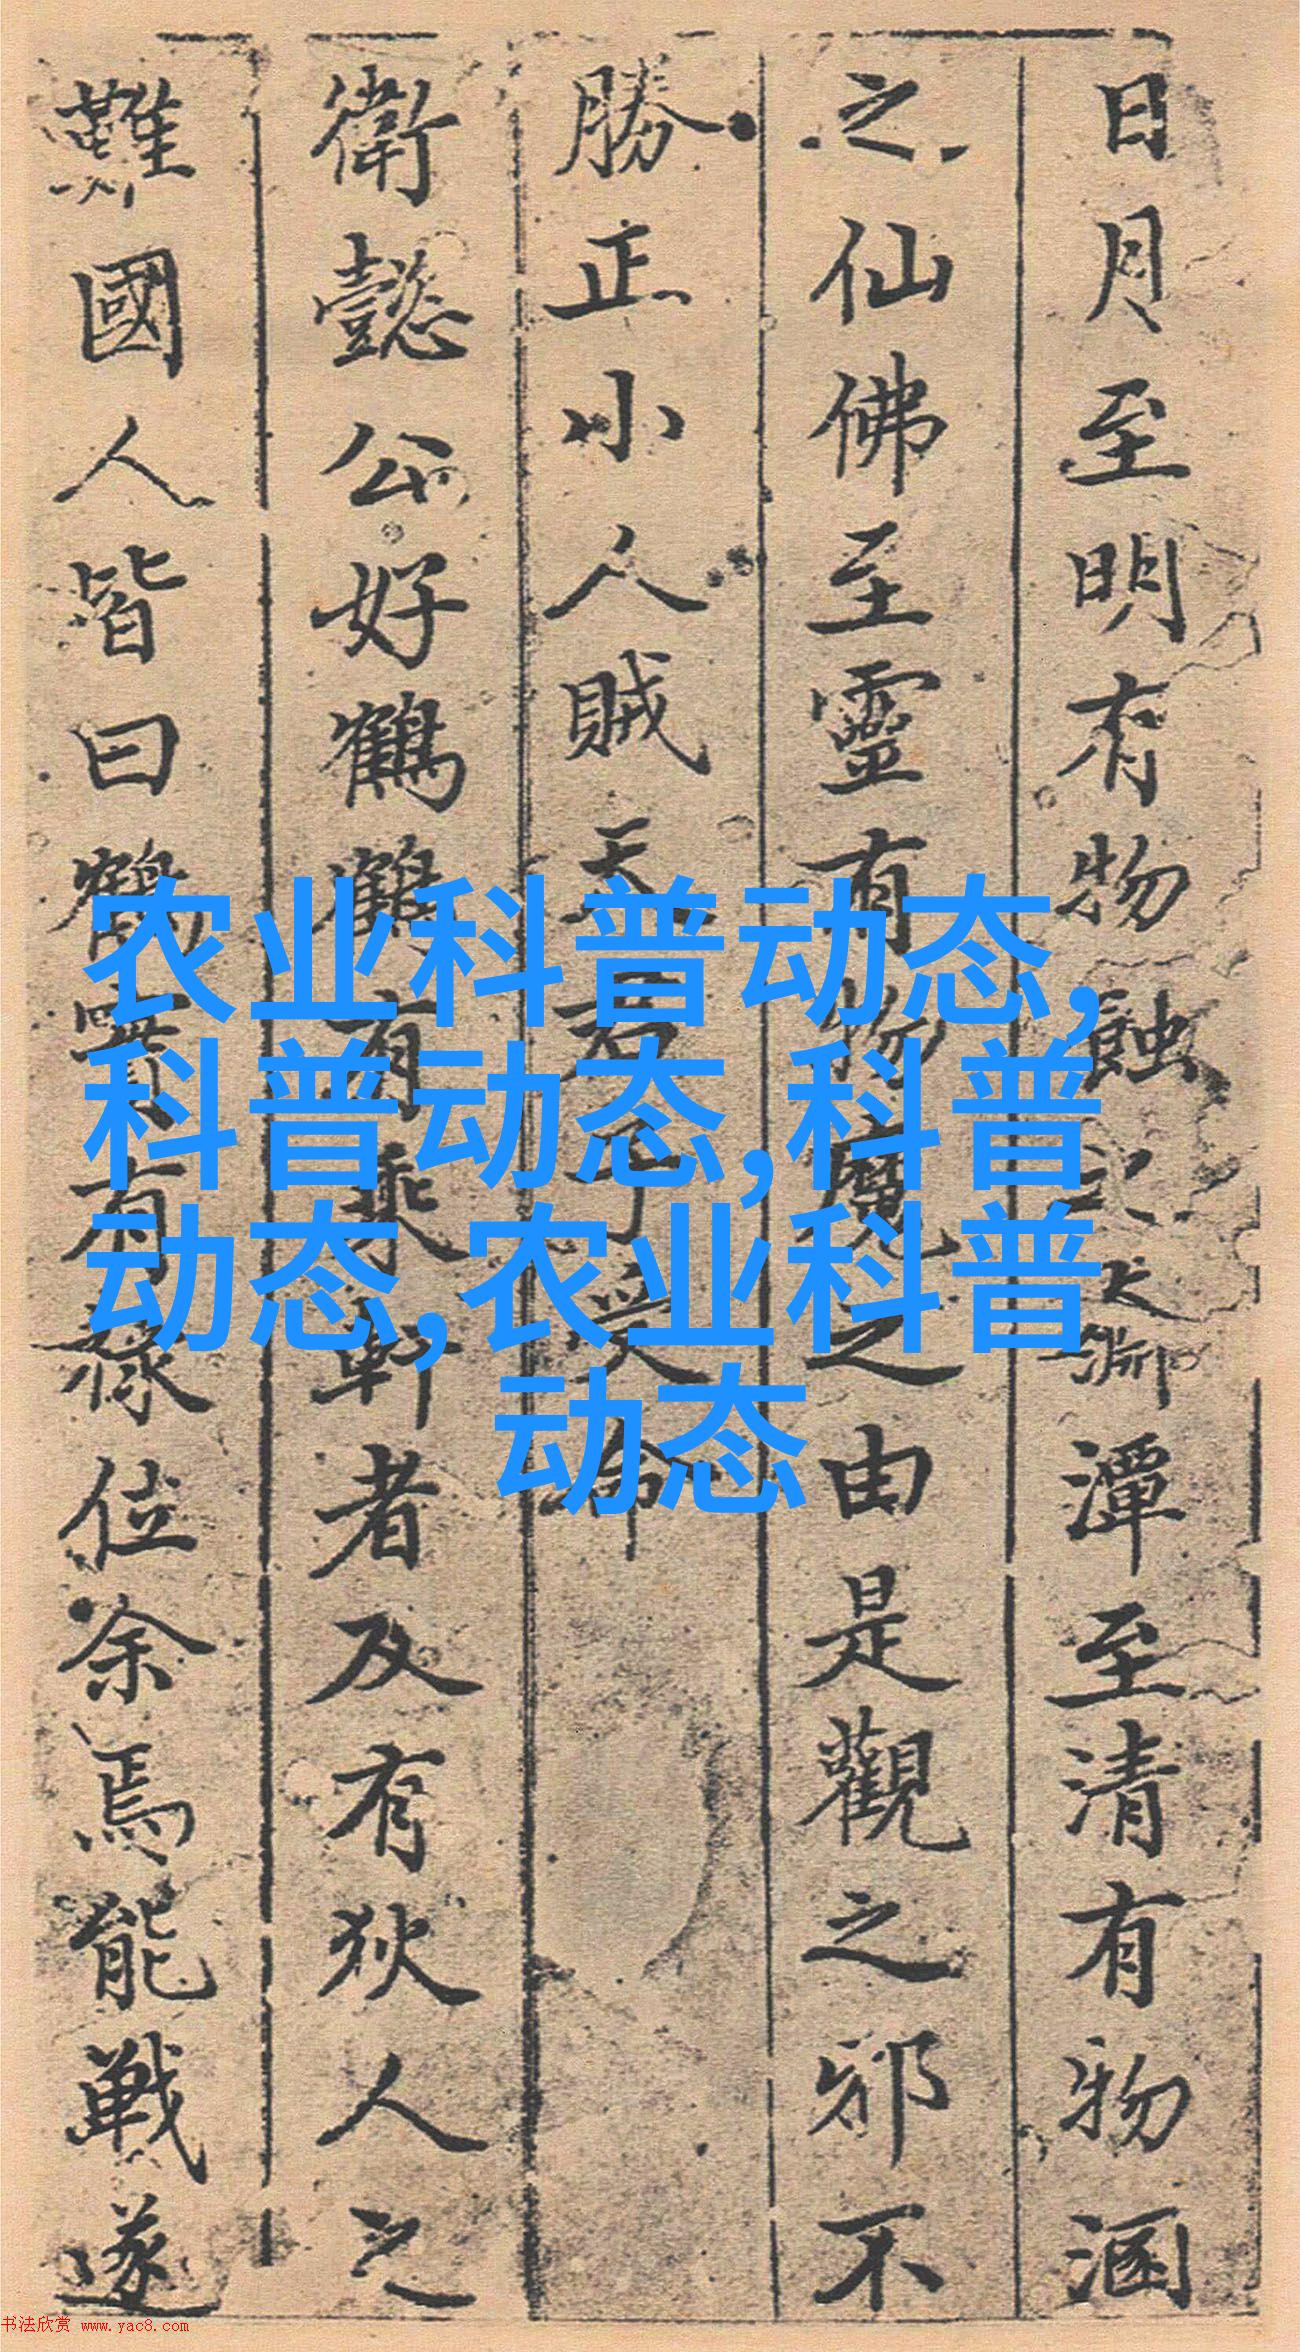 日月至明有物蝕之淵潭至清有物涵
之仙佛至靈有物魔之由是觀之邪不
勝正小人賊君子受命
衛懿公好鶴鶴有乘軒者及有狄人之
難國人皆曰鶴實有祿位余焉能戰遂
农业科普动态,
科普动态,科普
动态,农业科普
动态
书法欣赏 www.yac8.com